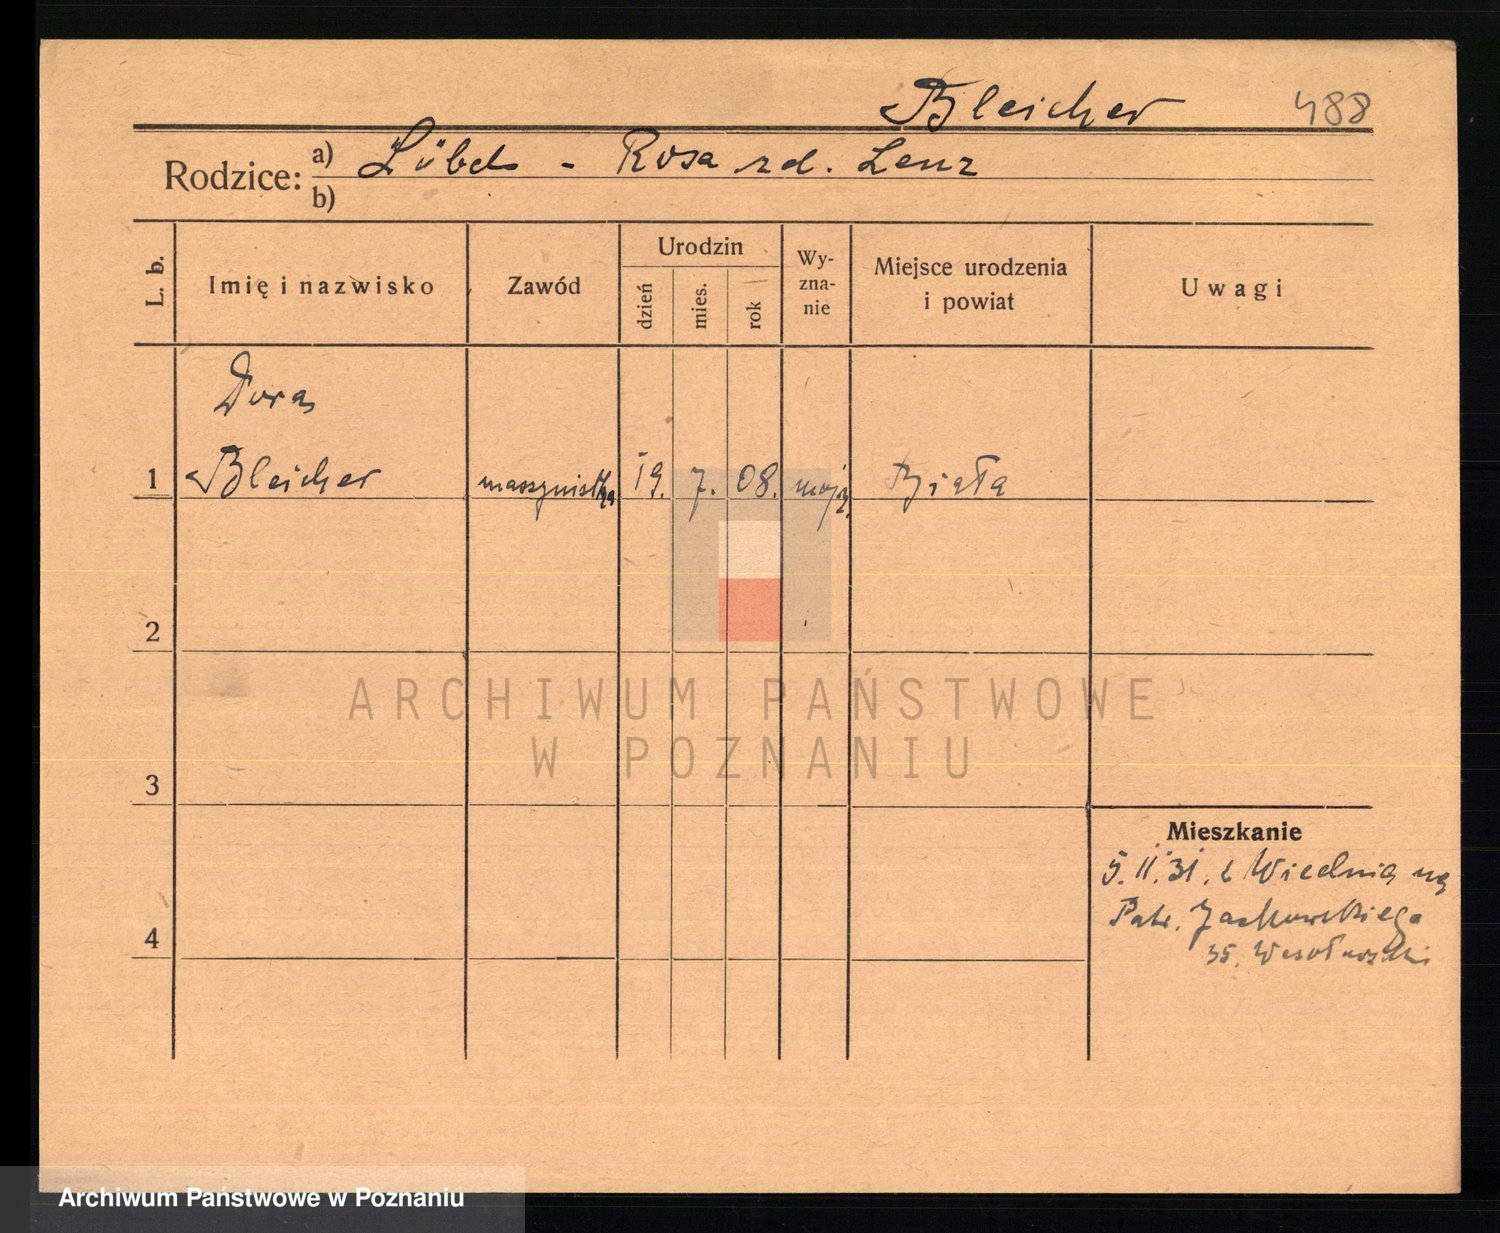 Bleicher 488
Rodzice: a) Löbel - Rosa zd. Lenz
b)
L. b. Imię i nazwisko Zawód Urodzin dzień mies. rok Wyznanie Miejsce urodzenia i powiat Uwagi
Dora
1 Bleicher maszynistka 19. 7. 08. mojż. Biała
2
ARCHIWUM PAŃSTWOWE
W POZNANIU
3
Mieszkanie
5. II. 31. z Wiednia na
Patr. Jackowskiego
4
35.
Archiwum Państwowe w Poznaniu